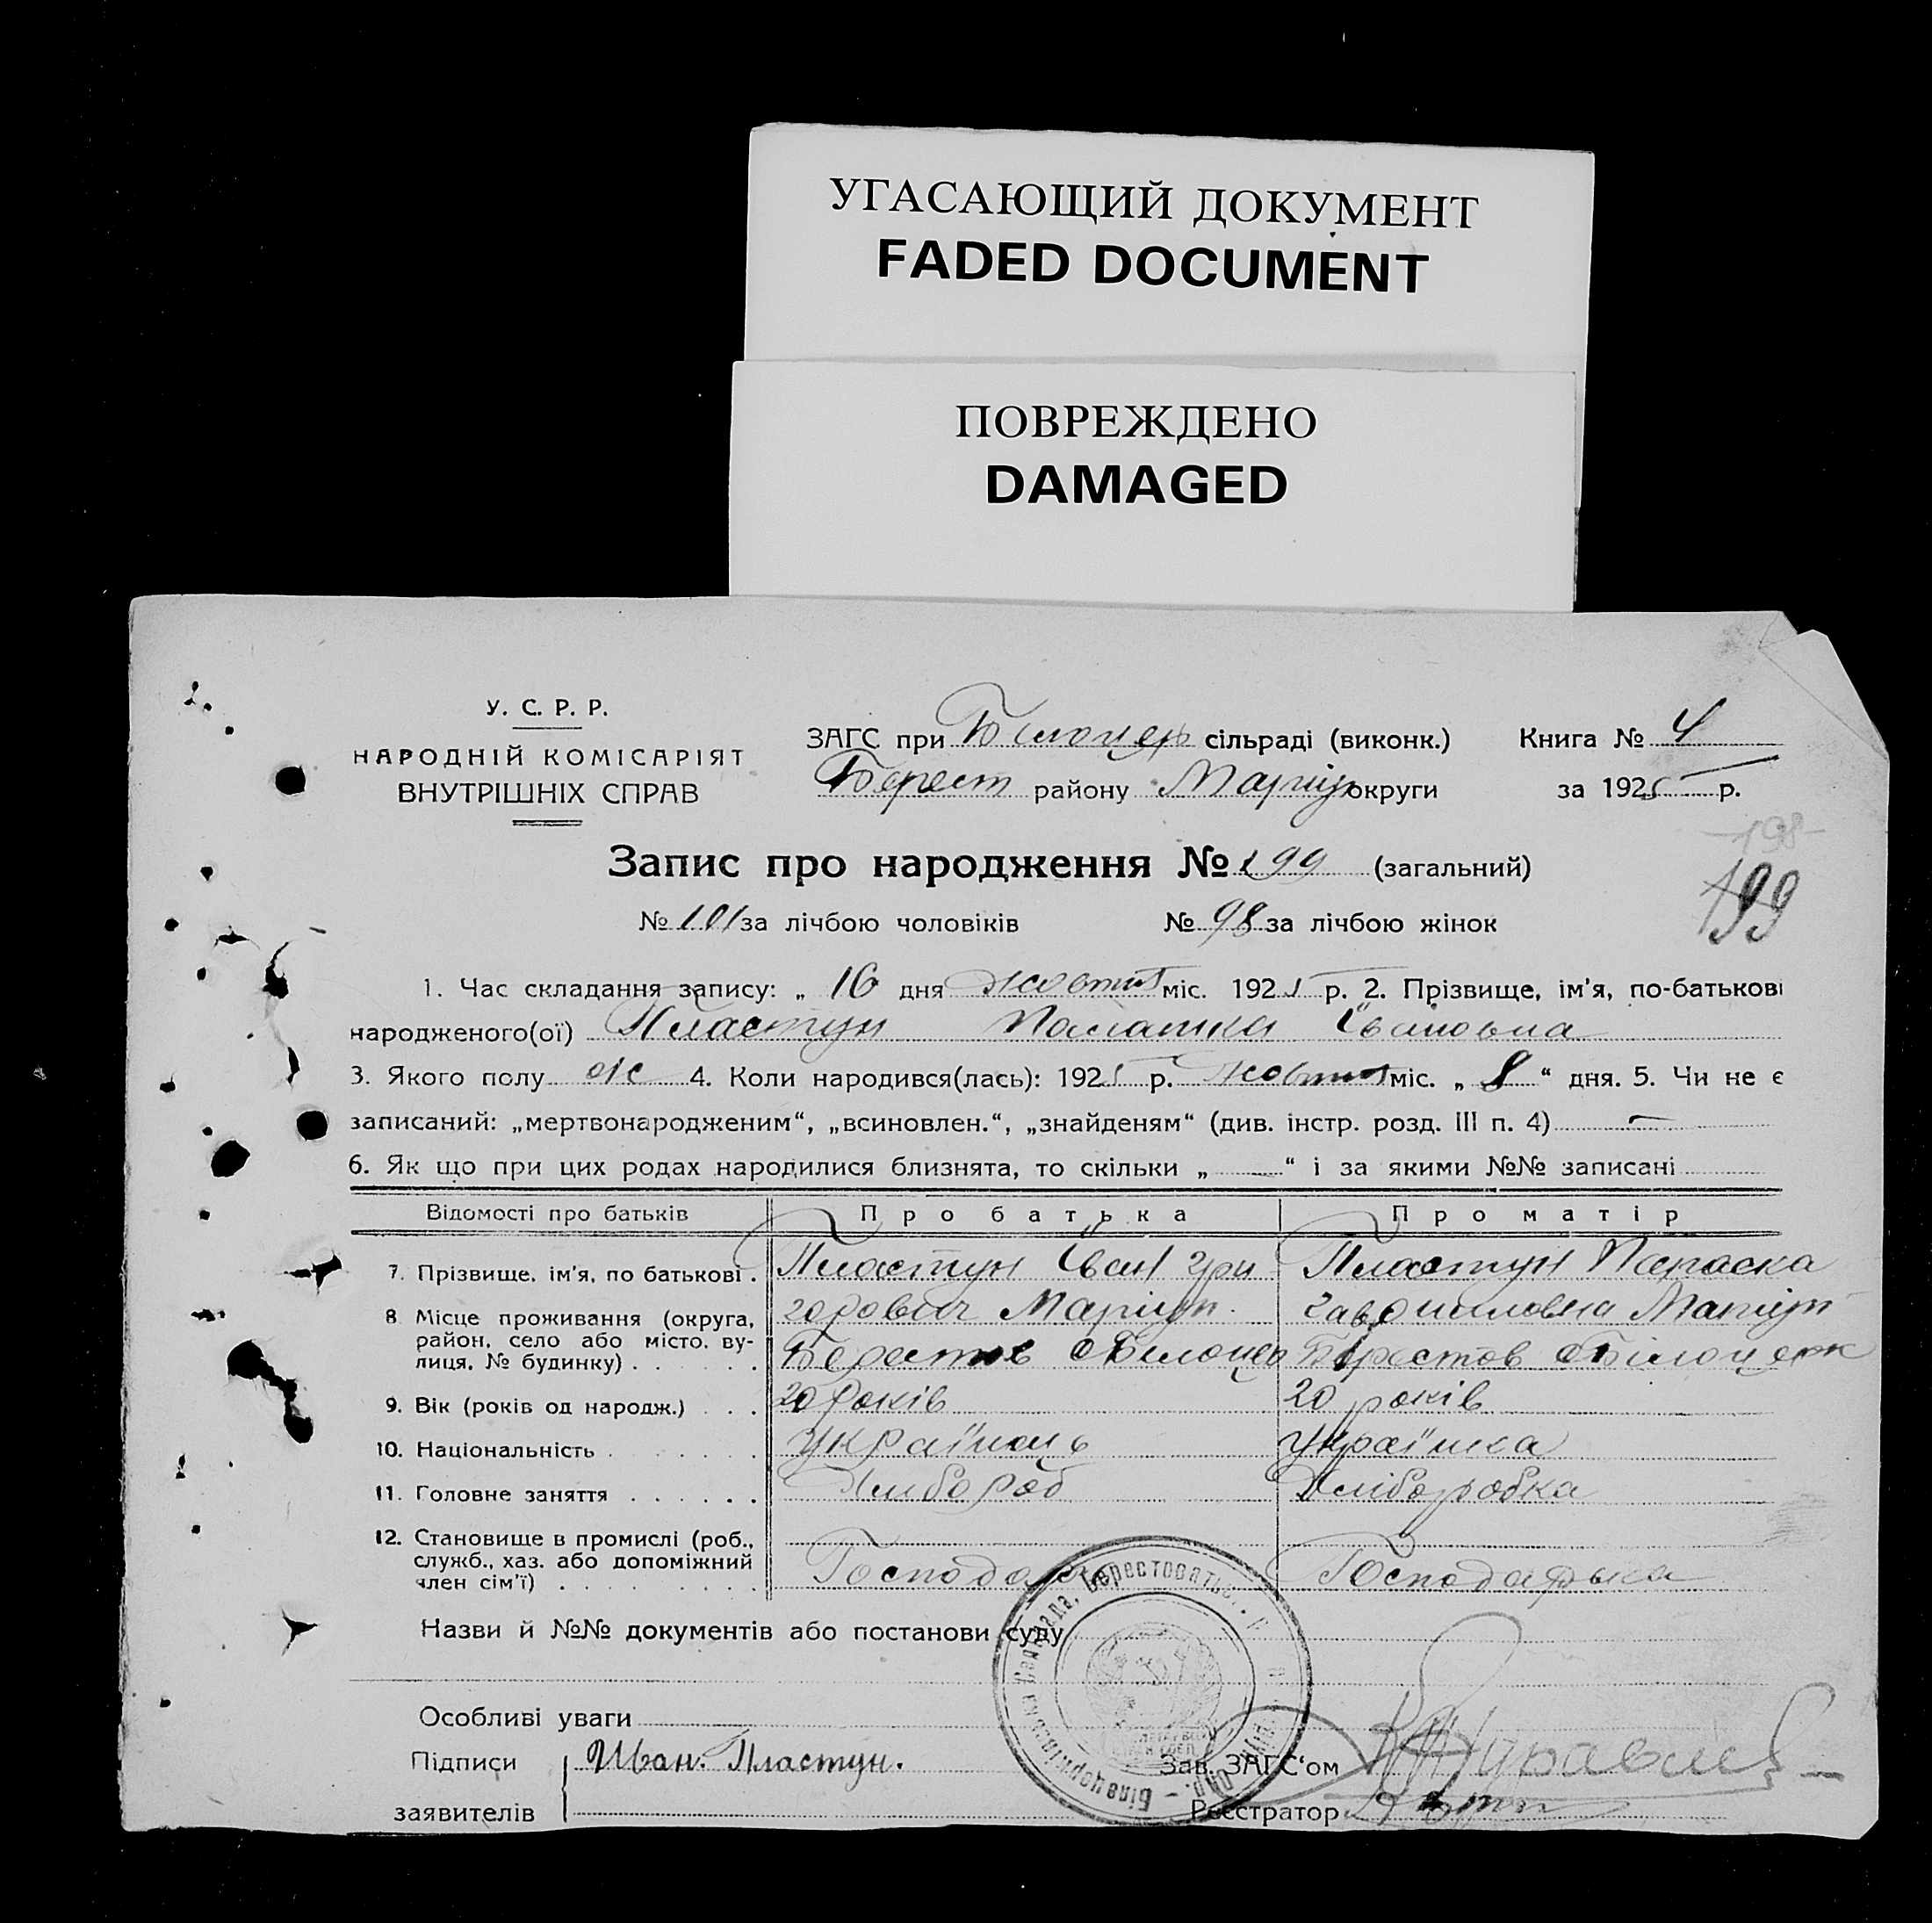 УГАСАЮЩИЙ ДОКУМЕНТ
FADED DOCUMENT
ПОВРЕЖДЕНО
DAMAGED
У. С. Р. Р.
НАРОДНІЙ КОМІСАРІЯТ
ВНУТРІШНІХ СПРАВ
ЗАГС при Білоцер сільраді (виконк.) Книга № 4
Берест району Маріуп округи за 1925 р.
198
Запис про народження № 199 (загальний)
199
№ 101 за лічбою чоловіків № 98 за лічбою жінок
1. Час складання запису: „ 16 дня жовтня міс. 1925 р. 2. Прізвище, ім'я, по-батькові
народженого(ої) Пластун Палашка Івановна
3. Якого полу ж 4. Коли народився(лась): 1925 р. жовтня міс. „ 8 “ дня. 5. Чи не є
записаний: „мертвонародженим“, „всиновлен.“, „знайденям“ (див. інстр. розд. III п. 4) —
6. Як що при цих родах народилися близнята, то скільки „ — “ і за якими №№ записані
Відомості про батьків Про батька Про матір
7. Прізвище, ім'я, по батькові . Пластун Іван Гри Пластун Параска
8 Місце проживання (округа, район, село або місто, вулиця, № будинку) . . . . . . горович Маріуп. Берестов Білоцер Маріуп Берестов Білоцерк
9. Вік (років од народж.) . . . 20 років 20 років
10. Національність . . . . . Українець Українка
11. Головне заняття . . . . . . Хлібороб Хліборобка
12. Становище в промислі (роб., служб., хаз. або допоміжний член сім'ї) . . . . . . . . . Господарь Господарька
Назви й №№ документів або постанови суду
Особливі уваги
Підписи Иван. Пластун. Зав. ЗАГС'ом
заявителів Реєстратор